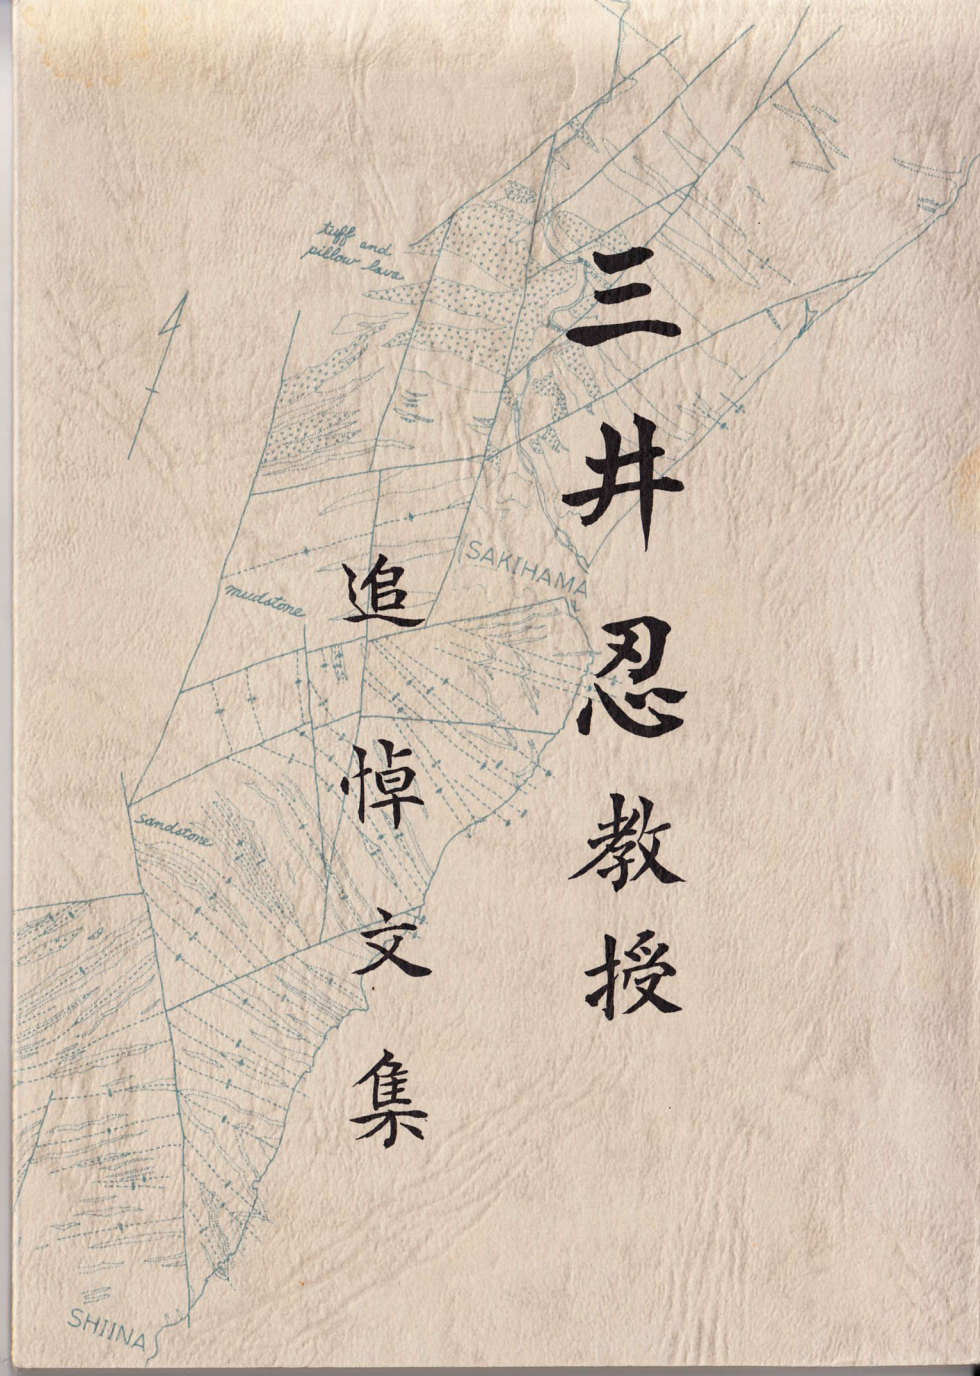 三井忍教授
追悼文集
tuff and
pillow lava
SAKIHAMA
mudstone
sandstone
SHIINA